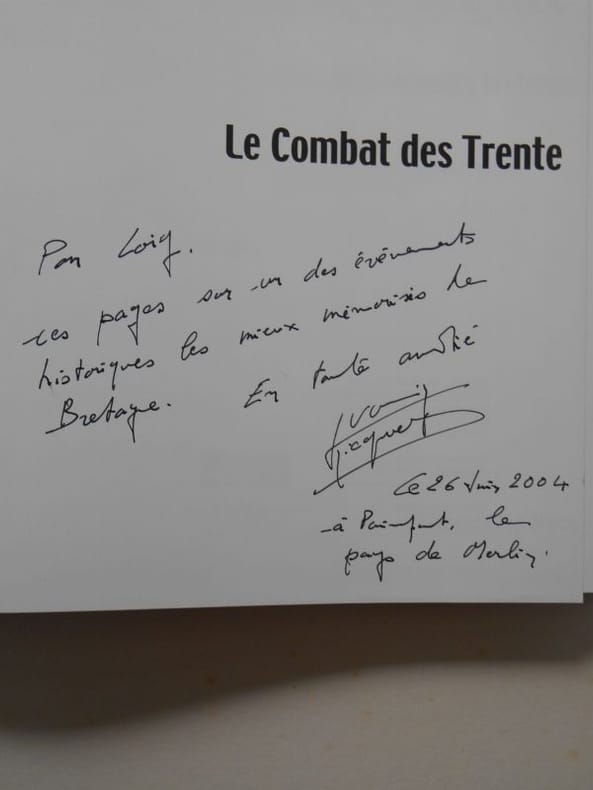 Le Combat des Trente
Pour Loig.
ces pages sur un des événements
historiques les mieux mémorisés de
Bretagne. En toute amitié
Le 26 Juin 2004
à Paimpont, le
pays de Merlin.